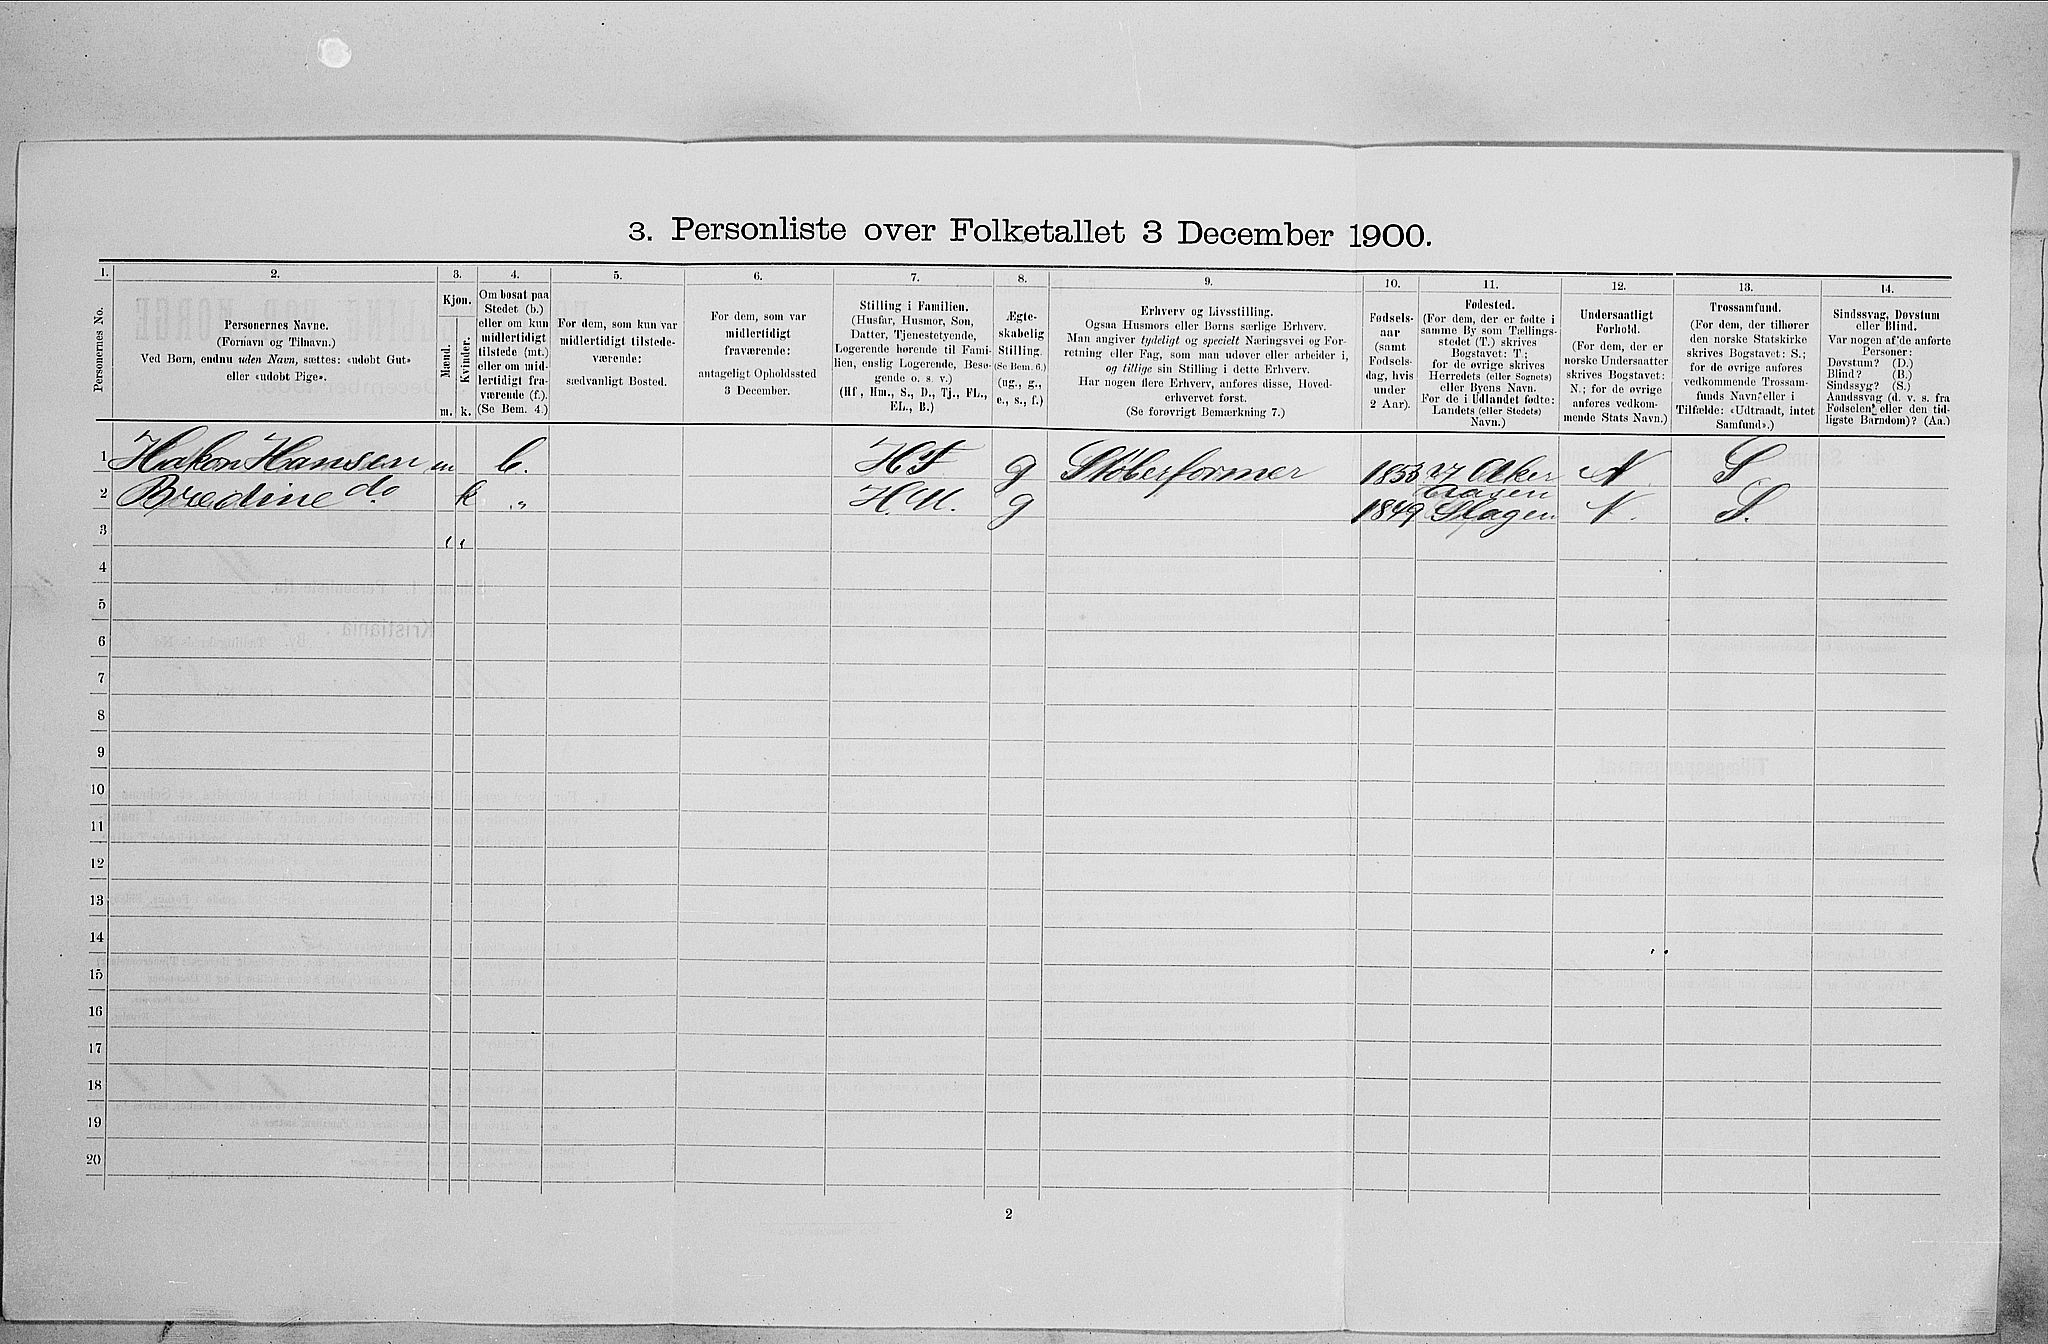 3. Personliste over Folketallet 3 December 1900.
1. 2. 3. 4. 5. 6. 7. 8. 9. 10. 11. 12. 13. 14.
Personernes No.
Personernes Navne.
(Fornavn og Tilnavn.)
Ved Børn, endnu uden Navn, sættes: «udøbt Gut»
eller «udøbt Pige».
Kjøn.
Mænd.
Kvinder.
m. k.
Om bosat paa
Stedet (b.)
eller om kun
midlertidigt
tilstede (mt.)
eller om mid-
lertidigt fra-
værende (f.).
(Se Bem. 4.)
For dem, som kun var
midlertidigt tilstede-
værende:
sædvanligt Bosted.
For dem, som var
midlertidigt
fraværende:
antageligt Opholdssted
3 December.
Stilling i Familien.
(Husfar, Husmor, Søn,
Datter, Tjenestetyende,
Logerende hørende til Fami-
lien, enslig Logerende, Besø-
gende o. s. v.)
(Hf, Hm., S., D., Tj., FL.,
EL., B.)
Ægte-
skabelig
Stilling.
(Se Bem. 6.)
(ug., g.,
e., s., f.)
Erhverv og Livsstilling.
Ogsaa Husmors eller Børns særlige Erhverv.
Man angiver tydeligt og specielt Næringsvei og For-
retning eller Fag, som man udøver eller arbeider i,
og tillige sin Stilling i dette Erhverv.
Har nogen flere Erhverv, anføres disse, Hoved-
erhvervet først.
(Se forøvrigt Bemærkning 7.)
Fødsels-
aar
(samt
Fødsels-
dag, hvis
under
2 Aar).
Fødested.
(For dem, der er fødte i
samme By som Tællings-
stedet (T.) skrives
Bogstavet: T;
for de øvrige skrives
Herredets (eller Sognets)
eller Byens Navn.
For de i Udlandet fødte:
Landets (eller Stedets)
Navn.)
Undersaatligt
Forhold.
(For dem, der er
norske Undersaatter
skrives Bogstavet:
N.; for de øvrige
anføres vedkom-
mende Stats Navn.)
Trossamfund.
(For dem, der tilhører
den norske Statskirke
skrives Bogstavet: S.;
for de øvrige anføres
vedkommende Trossam-
funds Navn, eller i
Tilfælde: «Udtraadt, intet
Samfund».)
Sindssvag, Døvstum
eller Blind.
Var nogen af de anførte
Personer:
Døvstum? (D.)
Blind? (B.)
Sindssyg? (S.)
Aandssvag (d. v. s. fra
Fødselen eller den tid-
ligste Barndom)? (Aa.)
1 Hakon Hansen m b. H F g Støberformer 1853 Aker N S
2 Bredine do k „ H.M. g 1849 Slagen N. S.
3
4
5
6
7
8
9
10
11
12
13
14
15
16
17
18
19
20
2